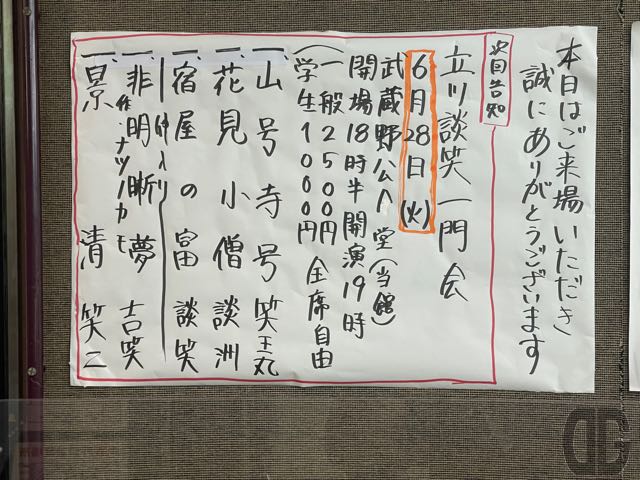 本日はご来場いただき
誠にありがとうございます
次回告知
立川談笑一門会
6月28日(火)
武蔵野公会堂(当館)
開場18時半開演19時
(一般2500円
学生1000円 全席自由
一、山号寺号 笑王丸
一、花見小僧 談洲
一、宿屋の富 談笑
仲入り
一、非明晰夢 吉笑
作・ナツノカモ
一、景清 笑二
DG